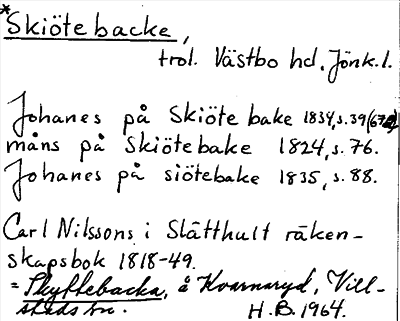 *Skiötebacke,
trol. Västbo hd. Jönk.l.
Johanes på Skiöte bake 1834, s.39
måns på Skiötebake 1824, s.76.
Johanes på siötebake 1835, s.88.
Carl Nilssons i Slätthult räken-
skapsbok 1818-49.
= Skyttebacka, å Kvarnaryd, Vill-
stads sn. H.B. 1964.